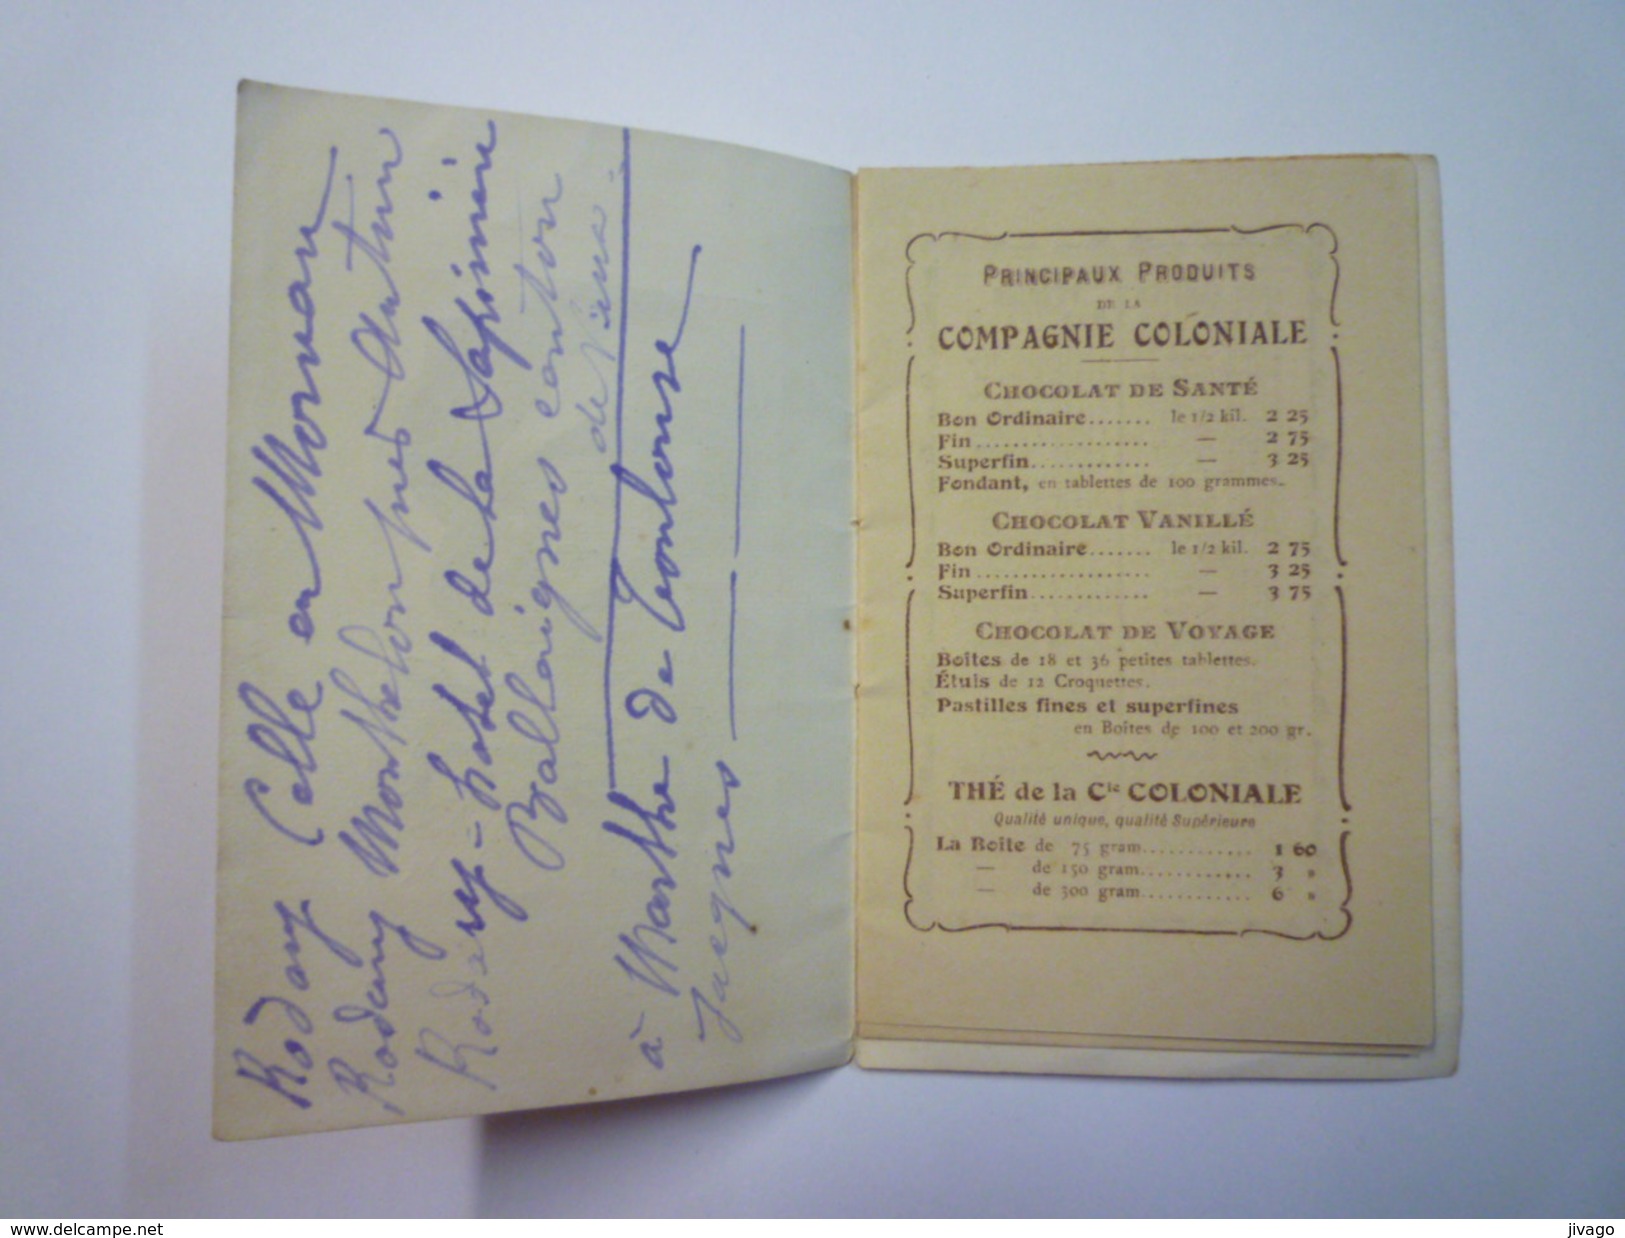 Rodary Celle en Morvan
Rodary Monthelon près Autun
Rodary - hotel de la Sapinière
Ballaigues canton
de Vaud
à Marthe de Toulouse
Jacques
PRINCIPAUX PRODUITS
DE LA
COMPAGNIE COLONIALE
CHOCOLAT DE SANTÉ
Bon Ordinaire....... le 1/2 kil. 2 25
Fin................... — 2 75
Superfin............. — 3 25
Fondant, en tablettes de 100 grammes.
CHOCOLAT VANILLÉ
Bon Ordinaire....... le 1/2 kil. 2 75
Fin................... — 3 25
Superfin............. — 3 75
CHOCOLAT DE VOYAGE
Boîtes de 18 et 36 petites tablettes.
Étuis de 12 Croquettes.
Pastilles fines et superfines
en Boîtes de 100 et 200 gr.
THÉ de la Cie COLONIALE
Qualité unique, qualité Supérieure
La Boîte de 75 gram............ 1 60
— de 150 gram............ 3 »
— de 300 gram............ 6 »
www.delcampe.net
jivago